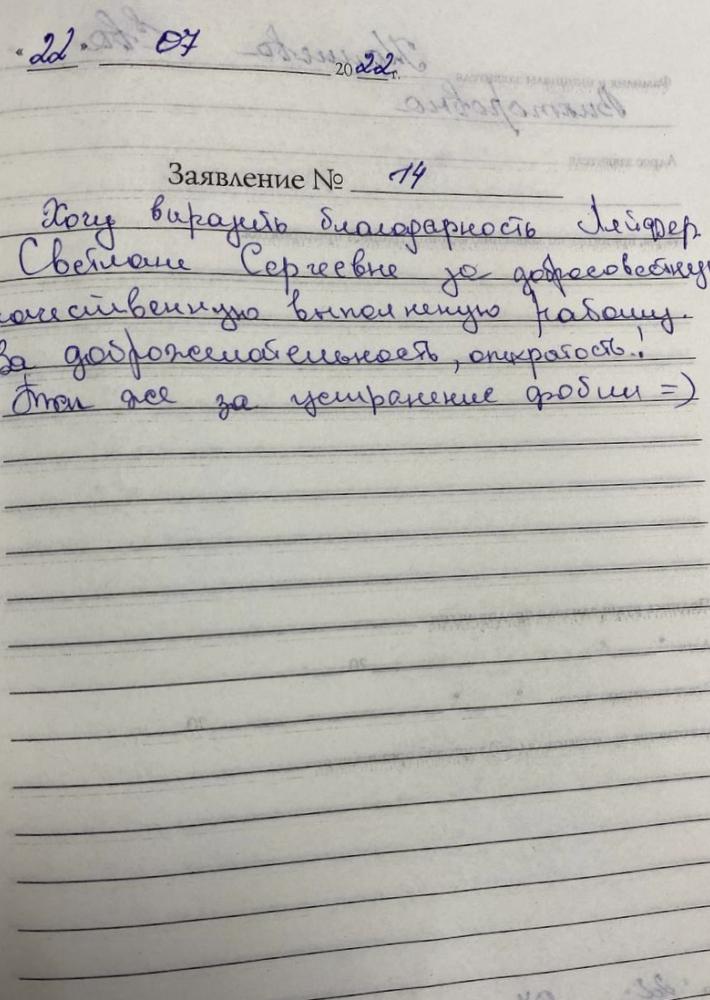 "22" 07 2022г.
Заявление № 14
Хочу виразить благодарность Лейдер
Светлане Сергеевне за добросовестную
качественную выполненую работу.
За доброжелательность, открытость!
Так же за устранение фобии =)